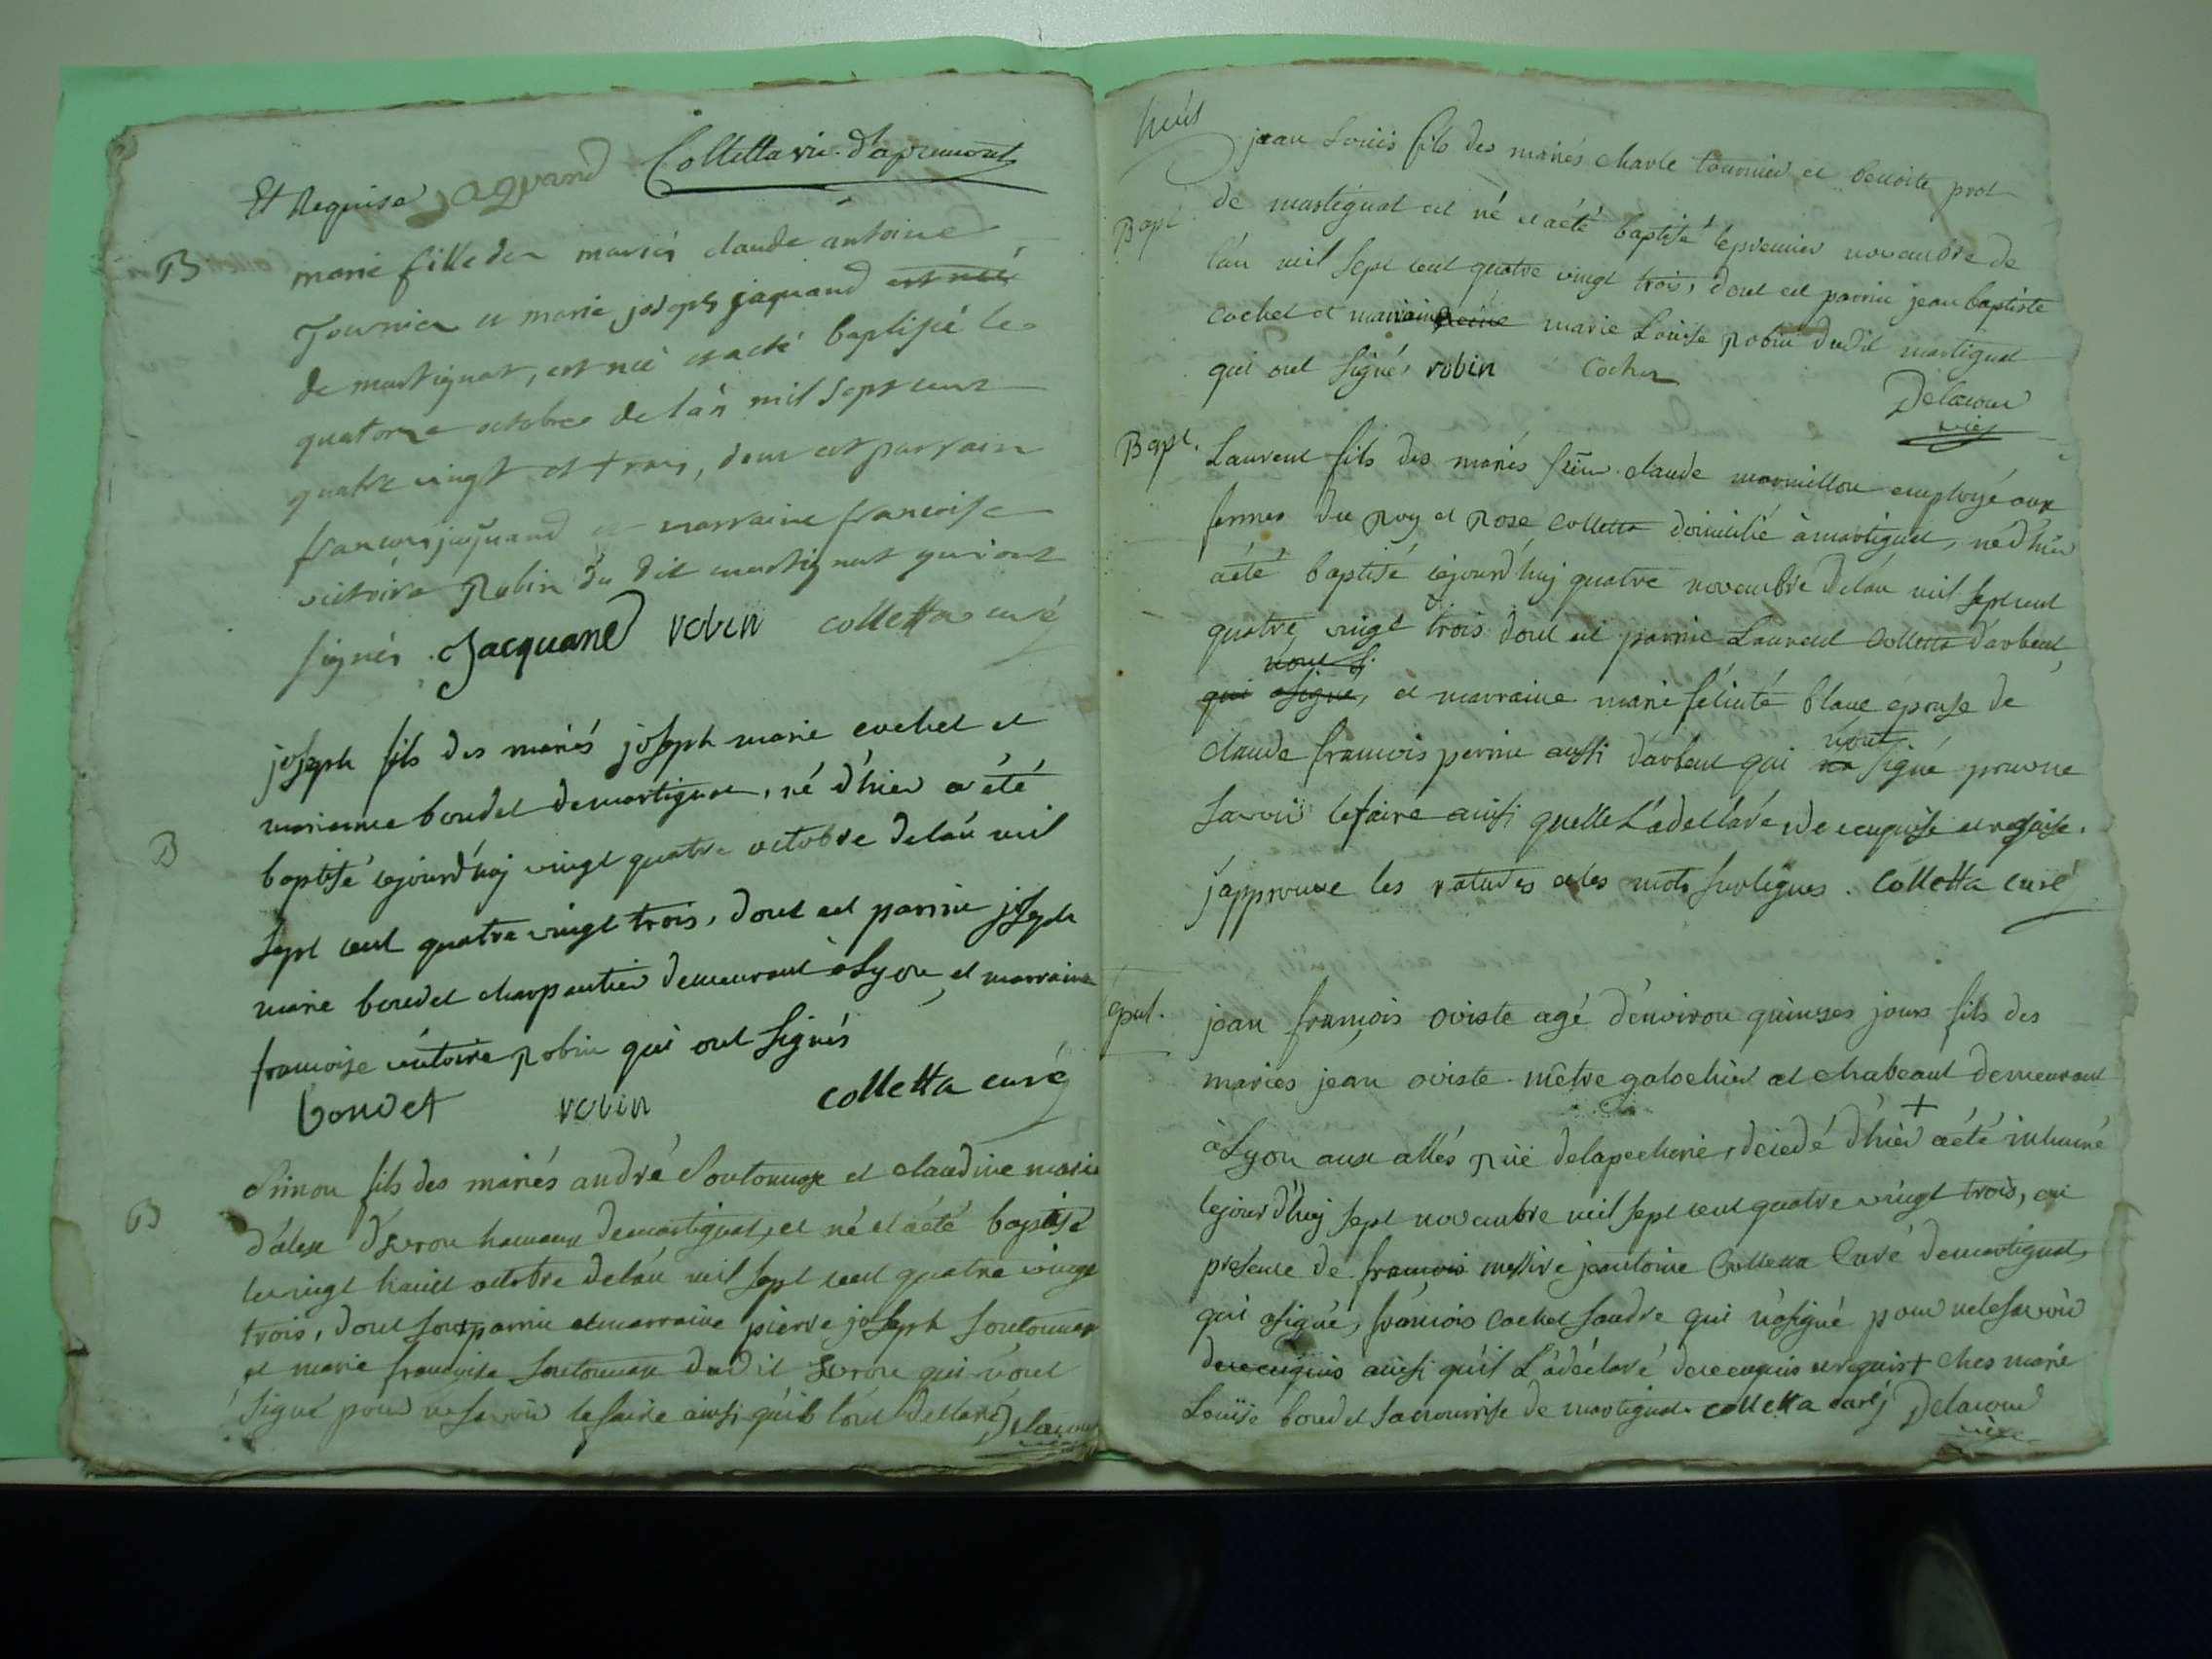 Et Requise Jaqvand Colletta vic. d'apremont
B
marie fille des mariés claude antoine
Tournier et marie joseph jaquand est neé
de martignat, est neé et a eté baptisée le
quatorze octobre de l'an mil sept cent
quatre vingt et trois, dont est parrain
francois jaquand et marraine francoise
victoire Robin du dit martignat qui ont
signés. Jacquand robin colletta curé
joseph fils des mariés joseph marie cochet et
marianne boudet de martignat, né d'hier a été
B
baptisé cejourd'huy vingt quatre octobre de l'an mil
sept cent quatre vingt trois, dont est parrin joseph
marie boudet charpentier demeurant à Lyon, et marraine
francoise victoire robin qui ont signés
bondet robin colletta curé
Simon fils des mariés andré Soutonnax et claudine marie
B
d'alex d'evron hameau de martignat, est né et a été baptisé
le vingt heuit octobre de l'an mil sept cent quatre vingt
trois, dont sont parrin et marraine pierre joseph soutonnax
et marie francoise soutonnax dudit evron qui n'ont
signé pour ne savoir le faire ainsi qu'ils l'ont dellaré Delacour
huit
jean Louis fils des mariés charle tournier et benoite prot
de martignat est né et a été baptisé le premier novembre de
Bapt
l'an mil sept cent quatre vingt trois, dont est parrin jean baptiste
cochet et marraine marie Louise robin dudit martignat
qui ont signé, robin Cochet
Delacour
vic
Bapt.
Laurent fils des mariés sieur claude marmillon employé aux
fermes du roy et rose colletta domicilié à martignat, né d'hier
a été baptisé cejourd'huy quatre novembre de l'an mil sept cent
quatre vingt trois dont est parrin Laurent Colletta d'arbent,
nont s.
qui a signé, et marraine marie félicité blanc épouse de
claude francois perrin aussi d'arbent qui n'a n'ont signé pour ne
savoir le faire ainsi quelle l'a dellaré de ce enquise et requise.
j'approuve les ratures et les mots surlignes. Colletta curé
épul.
jean françois oviste agé d'environ quinzes jours fils des
mariés jean oviste mêtre galochier et chabeaut demeurant
à Lyon aux allés rüe de la pecherie, décédé d'hier + a été inhumé
cejourd'huy sept novembre mil sept cent quatre vingt trois, en
presence de francois messire jeantoine Colletta Curé de martignat,
qui a signé, françois cochet landre qui n'a signé pour ne le savoir
de ce enquis ainsi qu'il l'a déclaré de ce enquis et requis + ches marie
Louise boudet sa nourrise de martignat. colletta curé Delacour
vic